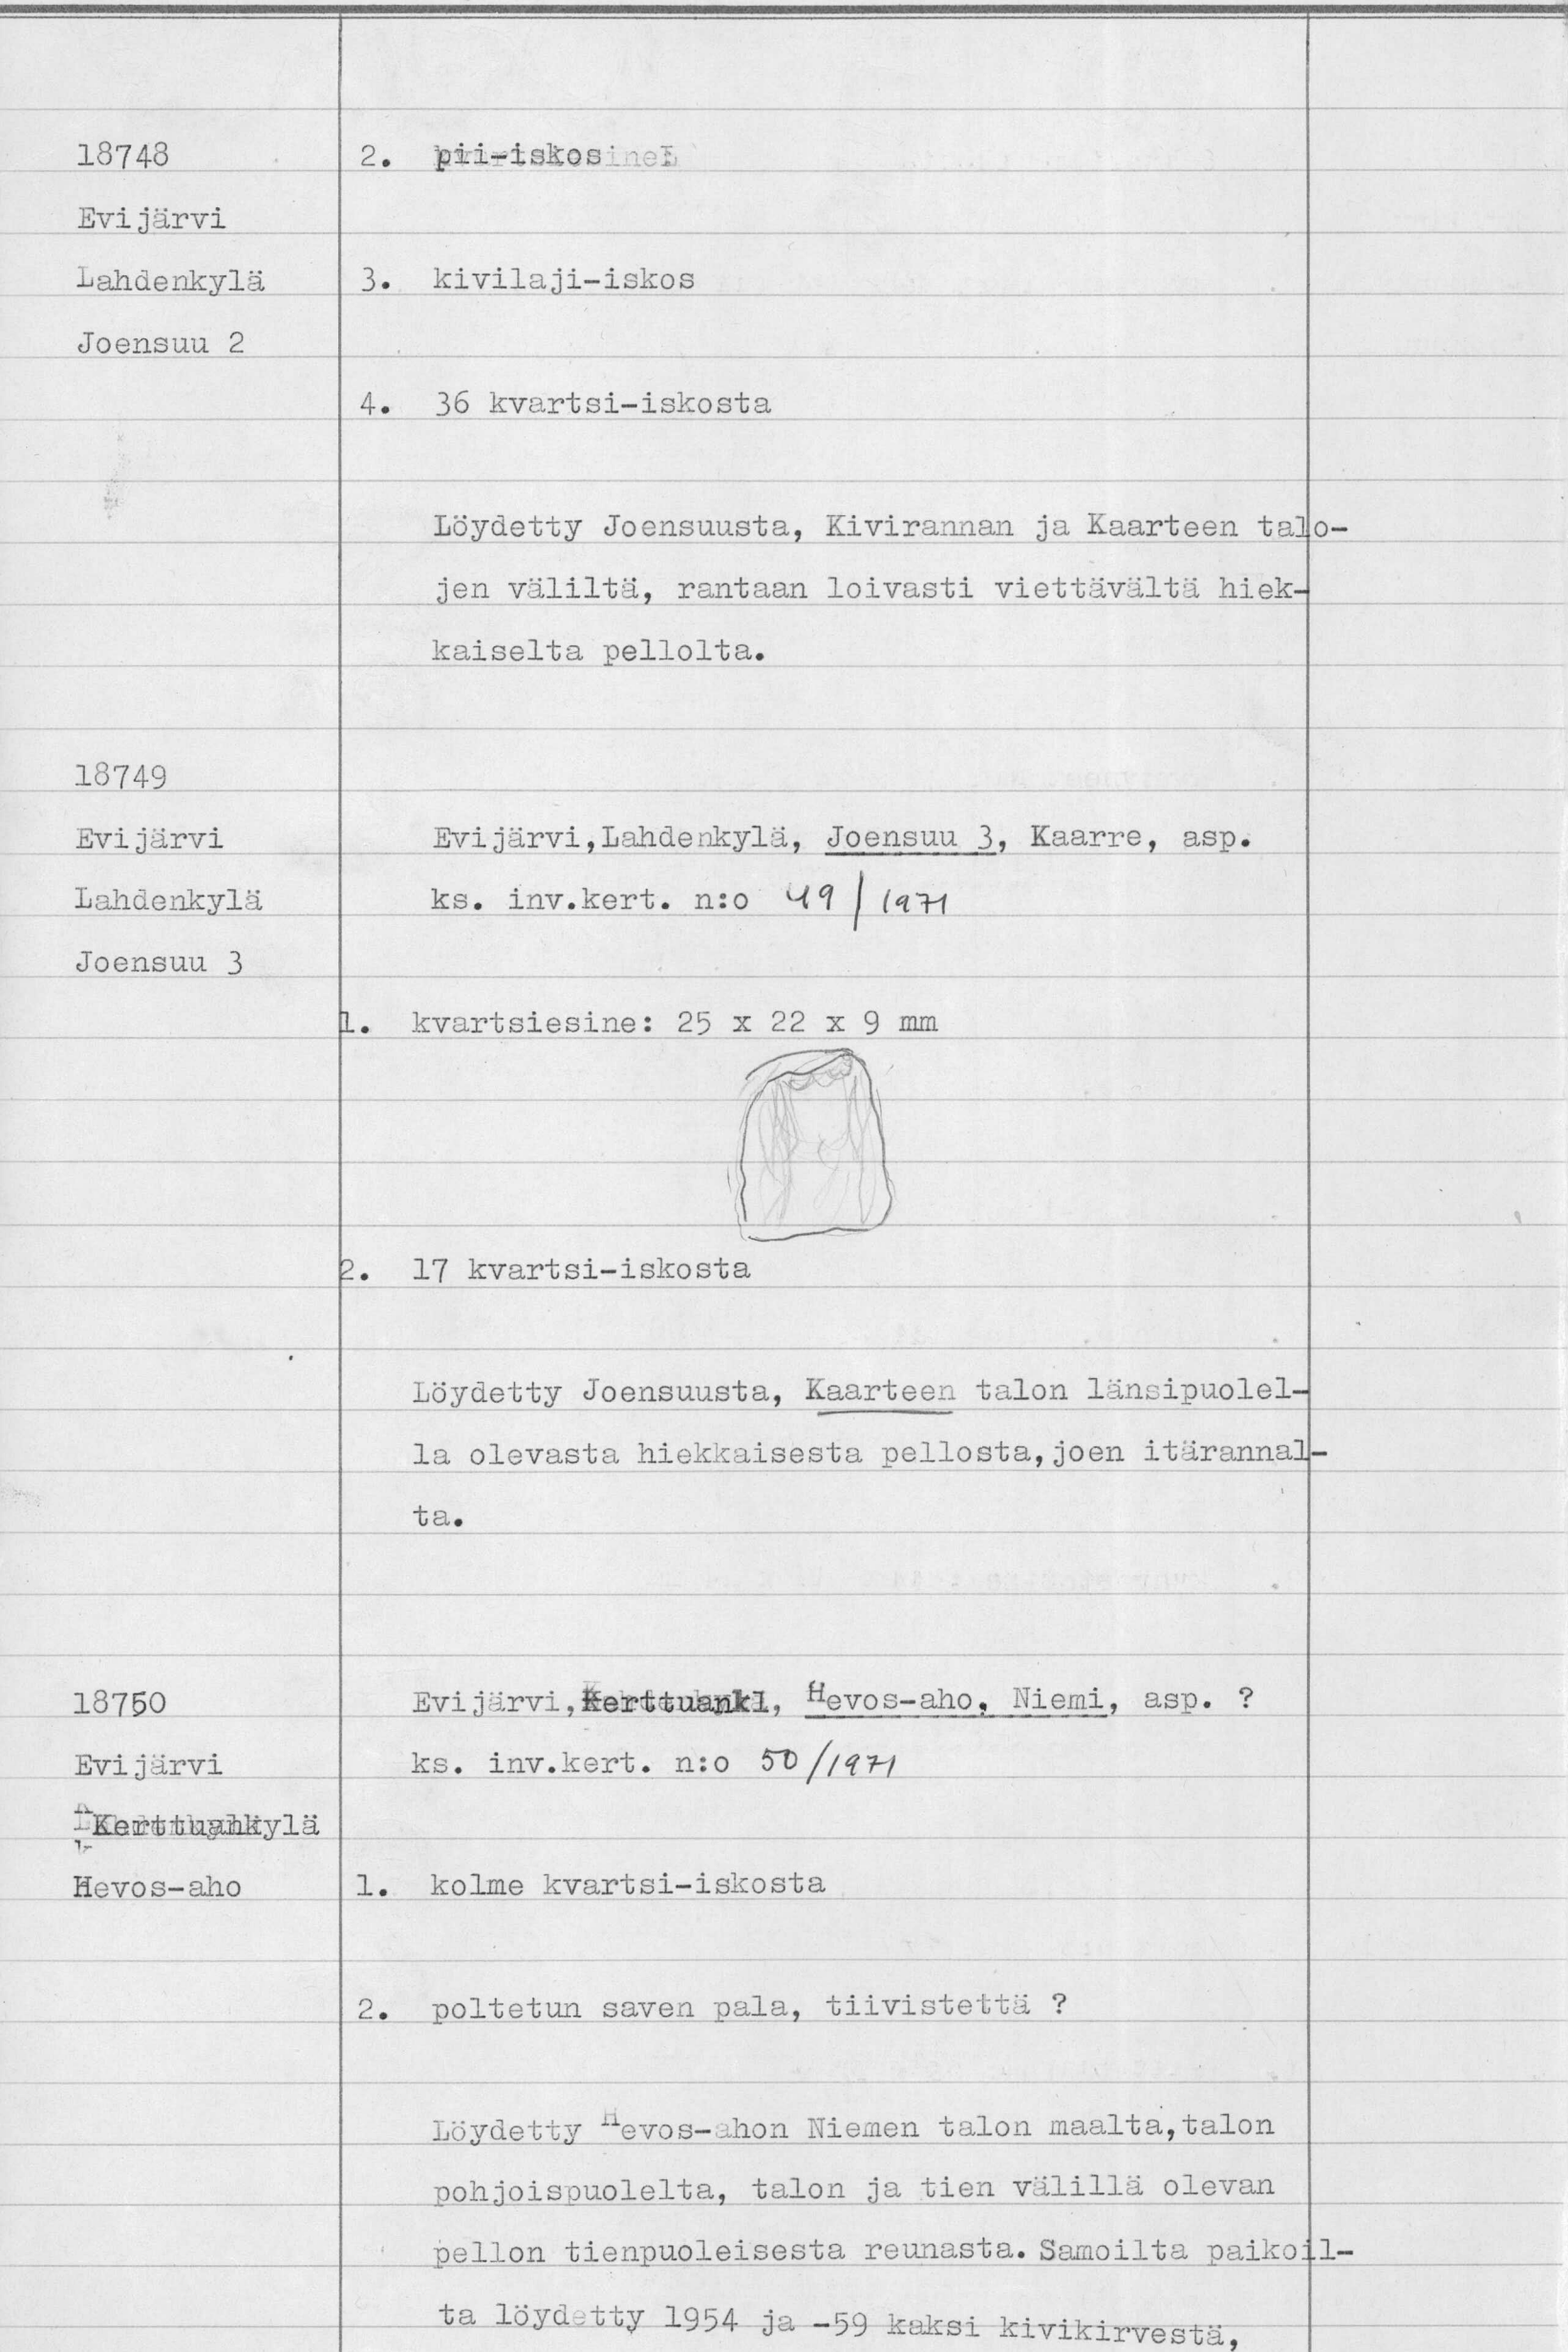 18748
2. pii-iskos
Evijärvi
Lahdenkylä
3. kivilaji-iskos
Joensuu 2
4. 36 kvartsi-iskosta
Löydetty Joensuusta, Kivirannan ja Kaarteen talo-
jen väliltä, rantaan loivasti viettävältä hiek-
kaiselta pellolta.
18749
Evijärvi
Evijärvi,Lahdenkylä, Joensuu 3, Kaarre, asp.
Lahdenkylä
ks. inv.kert. n:o 49/1971
Joensuu 3
1. kvartsiesine: 25 x 22 x 9 mm
2. 17 kvartsi-iskosta
Löydetty Joensuusta, Kaarteen talon länsipuolel-
la olevasta hiekkaisesta pellosta,joen itärannal-
ta.
18750
Evijärvi,Kerttuankl, Hevos-aho, Niemi, asp. ?
Evijärvi
ks. inv.kert. n:o 50/1971
Kerttuankylä
Hevos-aho
1. kolme kvartsi-iskosta
2. poltetun saven pala, tiivistettä ?
Löydetty Hevos-ahon Niemen talon maalta,talon
pohjoispuolelta, talon ja tien välillä olevan
pellon tienpuoleisesta reunasta. Samoilta paikoil-
ta löydetty 1954 ja -59 kaksi kivikirvestä,